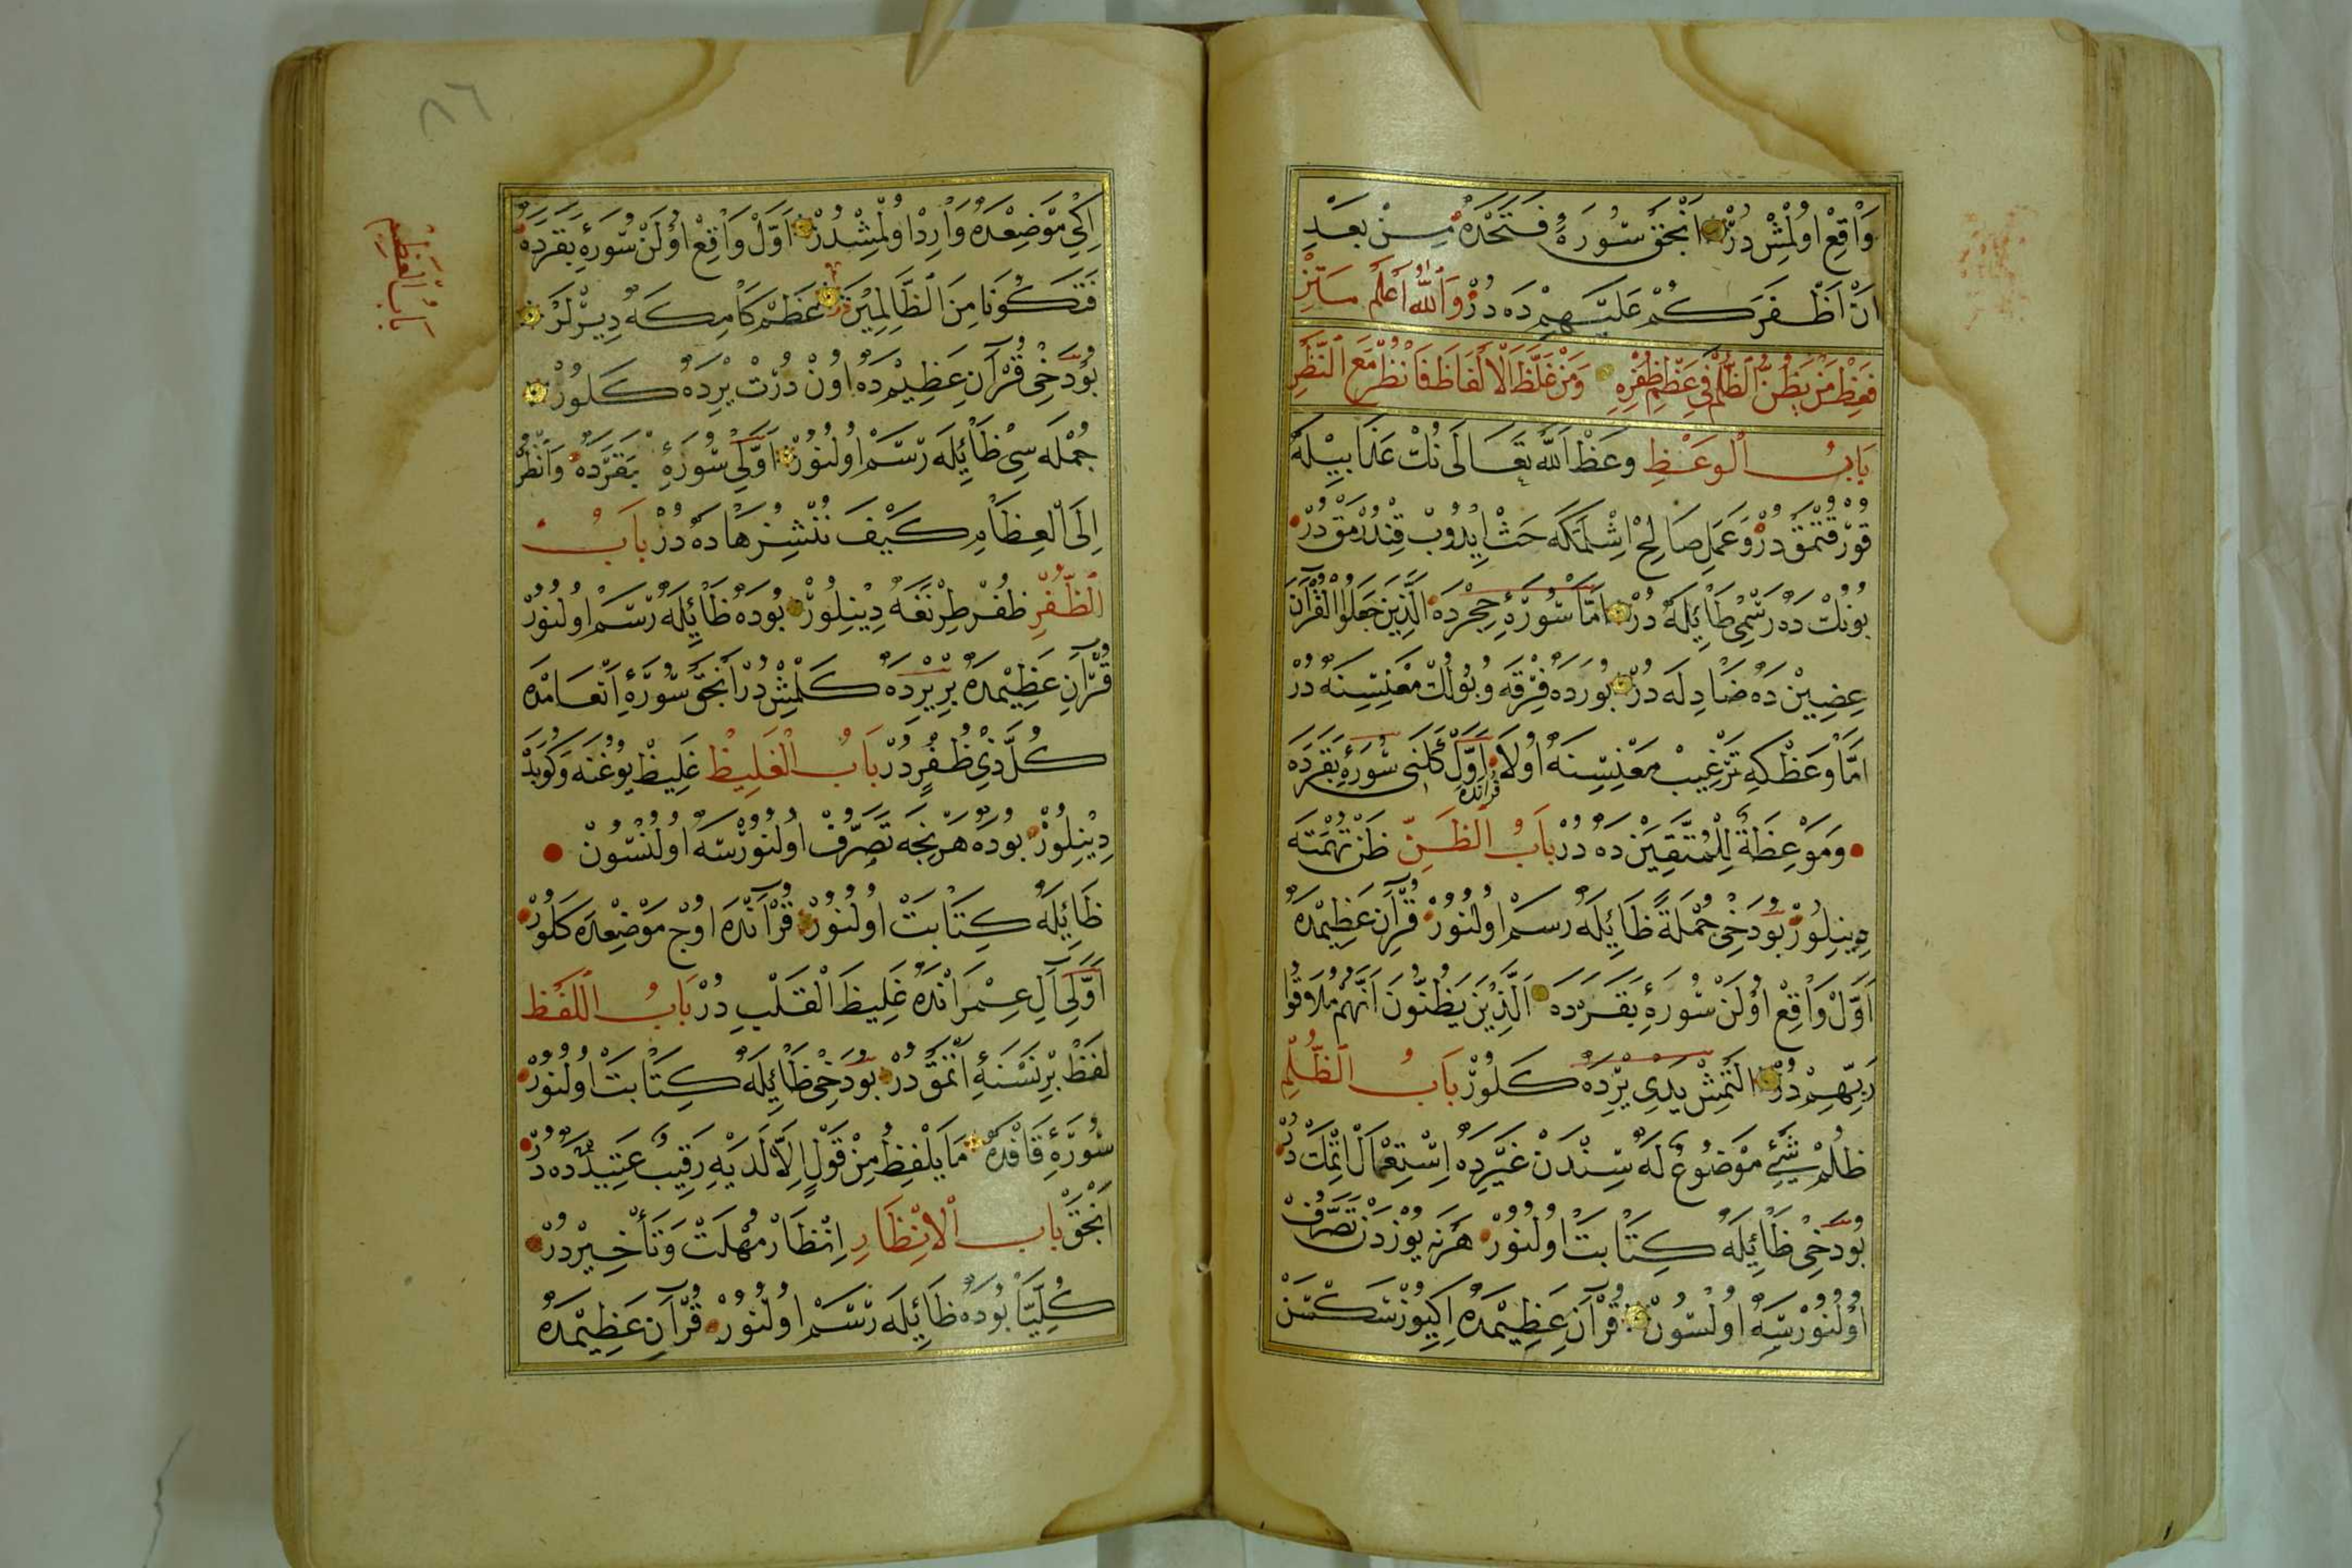 وَاقِعْ اُولْمِشْ دُرْ اَنْجَقْ سُورَهٔ فَتَحْدَهْ مِنْ بَعْدِ
اَنْ اَظْفَرَكُمْ عَلَيْهِمْ دَه دُرْ وَاللّٰهُ اَعْلَمُ
فَعِظْ مَنْ يَظُنُّ الظُّلْمَ فِي عَظْمِ ظُفْرِهِ وَمَنْ غَلَّظَ الْاَلْفَاظَ فَانْظُرْ مَعَ النَّظَرِ
بَابُ الْوَعْظِ وَعَظْ اَللّٰه تَعَالَى نُكْ عَذَابِيلَهْ
قُورْقُتْمَقْ دُرْ وَ عَمَلِ صَالِحْ اِشْلَمَكَه حَثْ اِيدُوبْ قِنْدُرْمَقْ دُرْ
بُونُكْ دَه رَسْمِي ظَائِلَهْ دُرْ اَمَّا سُورَهٔ حِجِرْدَهْ الَّذِينَ جَعَلُوا الْقُرْآنَ
عِضِينْ دَه ضَادِلَه دُرْ بُورَدَه فِرْقَه وَ بُولُكْ مَعْنِيسِنَهْ دُرْ
اَمَّا وَعَظْ كِه تَرْغِيبْ مَعْنِيسِنَهْ اُولَا قُرْآنْدَه اَوَّلْ كَلَنِي سُورَهٔ بَقَرَدَه
وَمَوْعِظَةً لِلْمُتَّقِينَ دَه دُرْ بَابُ الظَّنِّ ظَنْ تُهْمَتَه
دِينِلُورْ بُودَخِي جُمْلَةً ظَائِلَهْ رَسَمْ اُولُنُورْ قُرْآنِ عَظِيمْدَهْ
اَوَّلْ وَاقِعْ اُولَنْ سُورَهٔ بَقَرَدَه اَلَّذِينَ يَظُنُّونَ اَنَّهُمْ مُلَاقُوا
رَبِّهِمْ دُرْ اَلْتَمِشْ يَدِي يِرْدَهْ كَلُورْ بَابُ الظُّلْمِ
ظُلْمْ شَيْئِ مَوْضُوعٌ لَهْ سِنْدَنْ غَيْرِدَه اِسْتِعْمَالْ اِتْمَكْ دُرْ
بُودَخِي ظَائِلَهْ كِتَابَتْ اُولُنُورْ هَرْنَه يُوزْدَنْ تَصَرُّفْ
اُولُنُورْسَهْ اُولْسُونْ قُرْآنِ عَظِيمْدَهْ اِكِيُوزْ سَكْسَنْ
٨٦
بَابُ الْعَظْمِ
اِكِي مَوْضِعْدَهْ وَارِدْ اُولْمِشْدُرْ اَوَّلْ وَاقِعْ اُولَنْ سُورَهٔ بَقَرَدَهْ
فَتَكُونَا مِنَ الظَّالِمِينَ عَظْمْ كَامِكَهْ دِيرْلَرْ
بُودَخِي قُرْآنِ عَظِيمْدَه اُونْ دُرْتْ يِرْدَهْ كَلُورْ
جُمْلَه سِي ظَائِلَه رَسَمْ اُولُنُورْ اَوَّلِي سُورَهٔ بَقَرَدَهْ وَانْظُرْ
اِلَى الْعِظَامِ كَيْفَ نُنْشِزُهَا دَهْ دُرْ بَابُ
الظُّفْرِ ظُفُرْ طِرْنَغَه دِينِلُورْ بُودَهْ ظَائِلَهْ رَسَمْ اُولُنُورْ
قُرْآنِ عَظِيمْدَهْ بِرْ يِرْدَهْ كَلْمِشْ دُرْ اَنْجَقْ سُورَهٔ اَنْعَامْدَه
كُلَّ ذِي ظُفُرٍ دُرْ بَابُ الْغَلِيظِ غَلِيظْ يُوغُنَه وَ كُوبَدْ
دِينِلُورْ بُودَهْ هَرْنِجَه تَصَرُّفْ اُولُنُورْسَهْ اُولُنْسُونْ
ظَائِلَهْ كِتَابَتْ اُولُنُورْ قُرْآنْدَه اُوجْ مَوْضِعْدَه كَلُورْ
اَوَّلِي آلِ عِمْرَانْدَهْ غَلِيظَ الْقَلْبِ دُرْ بَابُ اللَّفْظِ
لَفِظْ بِرْ نَسْنَهٔ اَتْمَقْ دُرْ بُودَخِي ظَائِلَهْ كِتَابَتْ اُولُنُورْ
سُورَهٔ قَافْدَهْ مَا يَلْفِظُ مِنْ قَوْلٍ اِلَّا لَدَيْهِ رَقِيبٌ عَتِيدٌ دَه دُرْ
اَنْجَقْ بَابُ الْاِنْتِظَارِ اِنْتِظَارْ مُهْلَتْ وَ تَأْخِيرْ دُرْ
كُلِّيًّا بُودَهْ ظَائِلَه رَسَمْ اُولُنُورْ قُرْآنِ عَظِيمْدَهْ